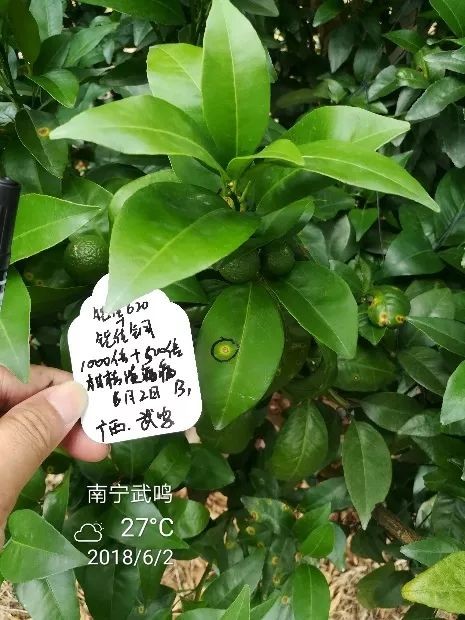 锐特630
锐特钙
1000倍+500倍
柑桔溃疡病
6月2日 B1
广西.武鸣
南宁武鸣
27°C
2018/6/2